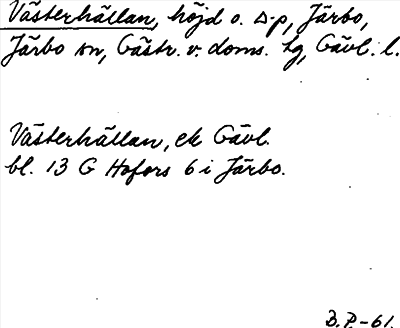 Västerhällan, höjd o. Δ-p, Järbo,
Järbo sn, Gästr. v. doms. tg, Gävl. l.
Västerhällan, ek Gävl.
bl. 13 G Hofors 6 i Järbo.
B.P.-61.